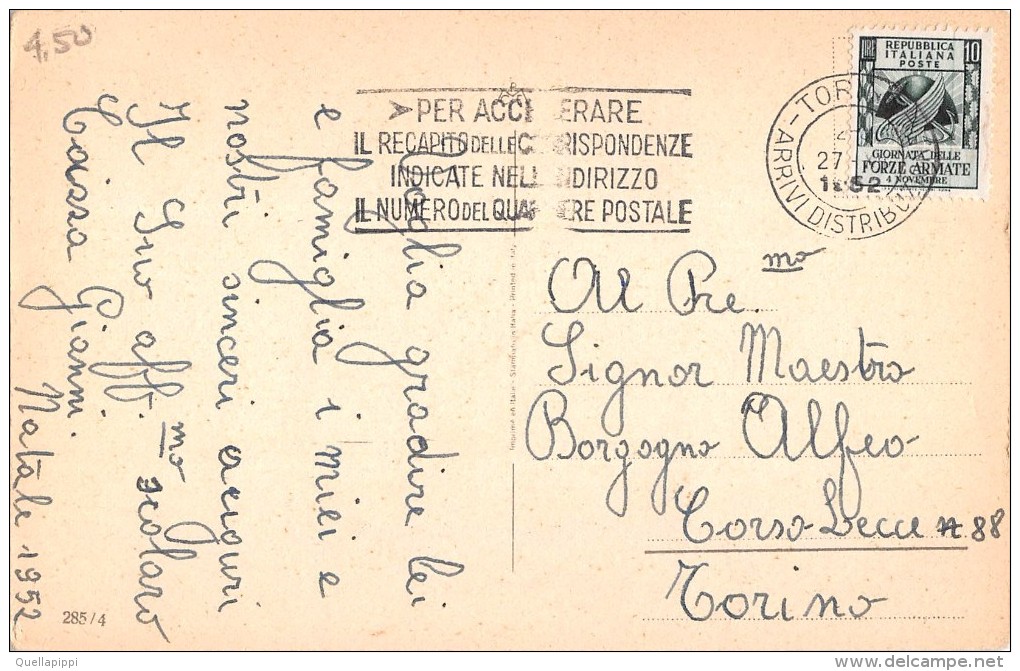 4,50
Voglia gradire lei
e famiglia i miei e
nostri sinceri auguri
Il Suo aff.mo scolaro
Gianni.
Natale 1952
285/4
PER ACCELERARE
IL RECAPITO DELLE CORRISPONDENZE
INDICATE NELL'INDIRIZZO
IL NUMERO DEL QUARTIERE POSTALE
LIRE 10
REPUBBLICA
ITALIANA
POSTE
GIORNATA DELLE
FORZE ARMATE
4 NOVEMBRE
27
1952
ARRIVI DISTRIBU
Imprimé en Italie - Stampato in Italia - Printed in Italy
Al Pre.mo
Signor Maestro
Borgogno Alfeo
Corso Lecce n 88
Torino
Quellapippi
delcampe.net